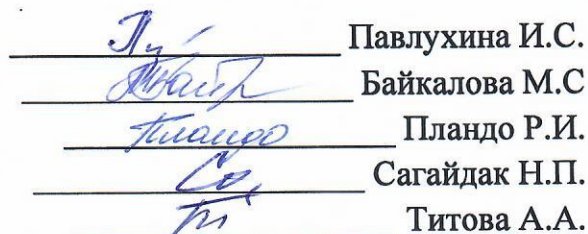 Павлухина И.С.
Байкалова М.С
Пландо Пландо Р.И.
Сагайдак Н.П.
Титова А.А.